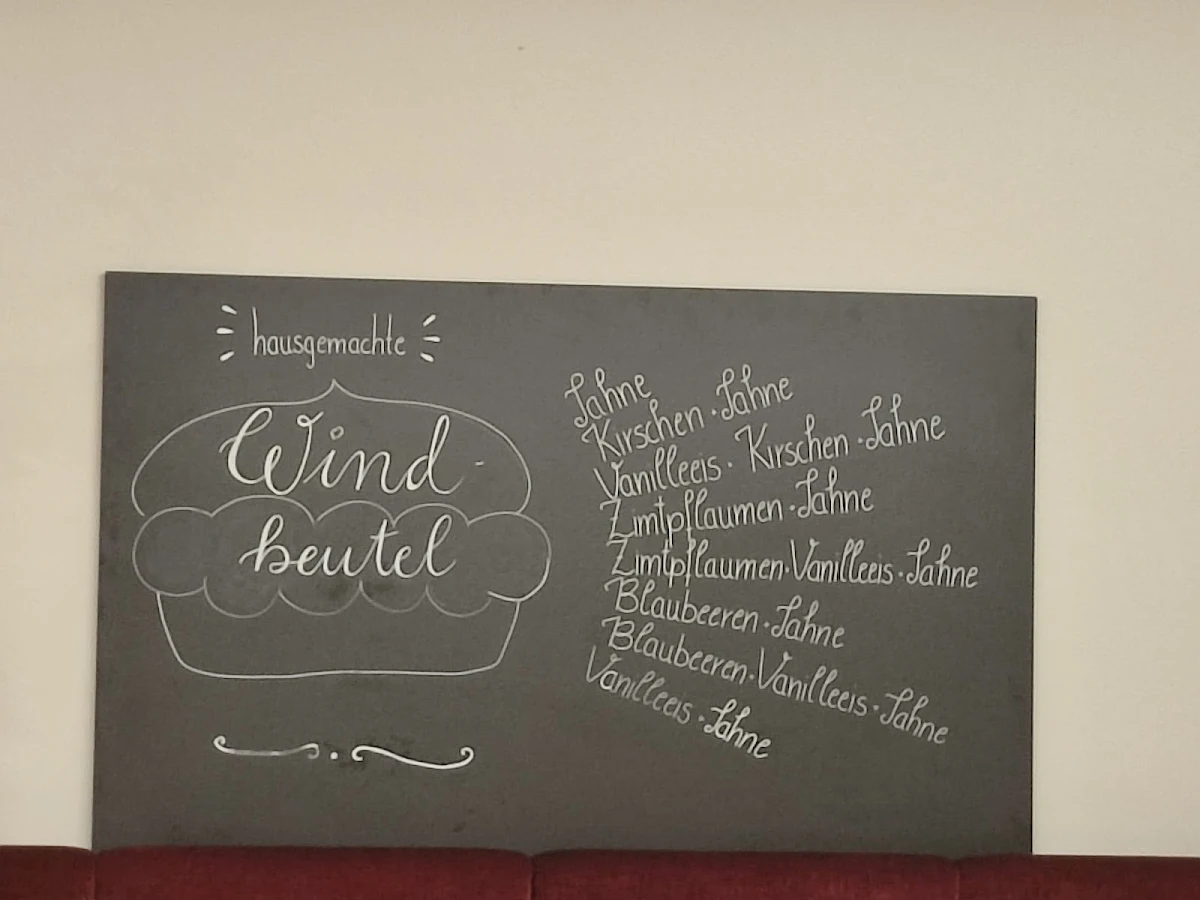 hausgemachte
Wind-
beutel
Sahne
Kirschen·Sahne
Vanilleeis·Kirschen·Sahne
Zimtpflaumen·Sahne
Zimtpflaumen·Vanilleeis·Sahne
Blaubeeren·Sahne
Blaubeeren·Vanilleeis·Sahne
Vanilleeis·Sahne